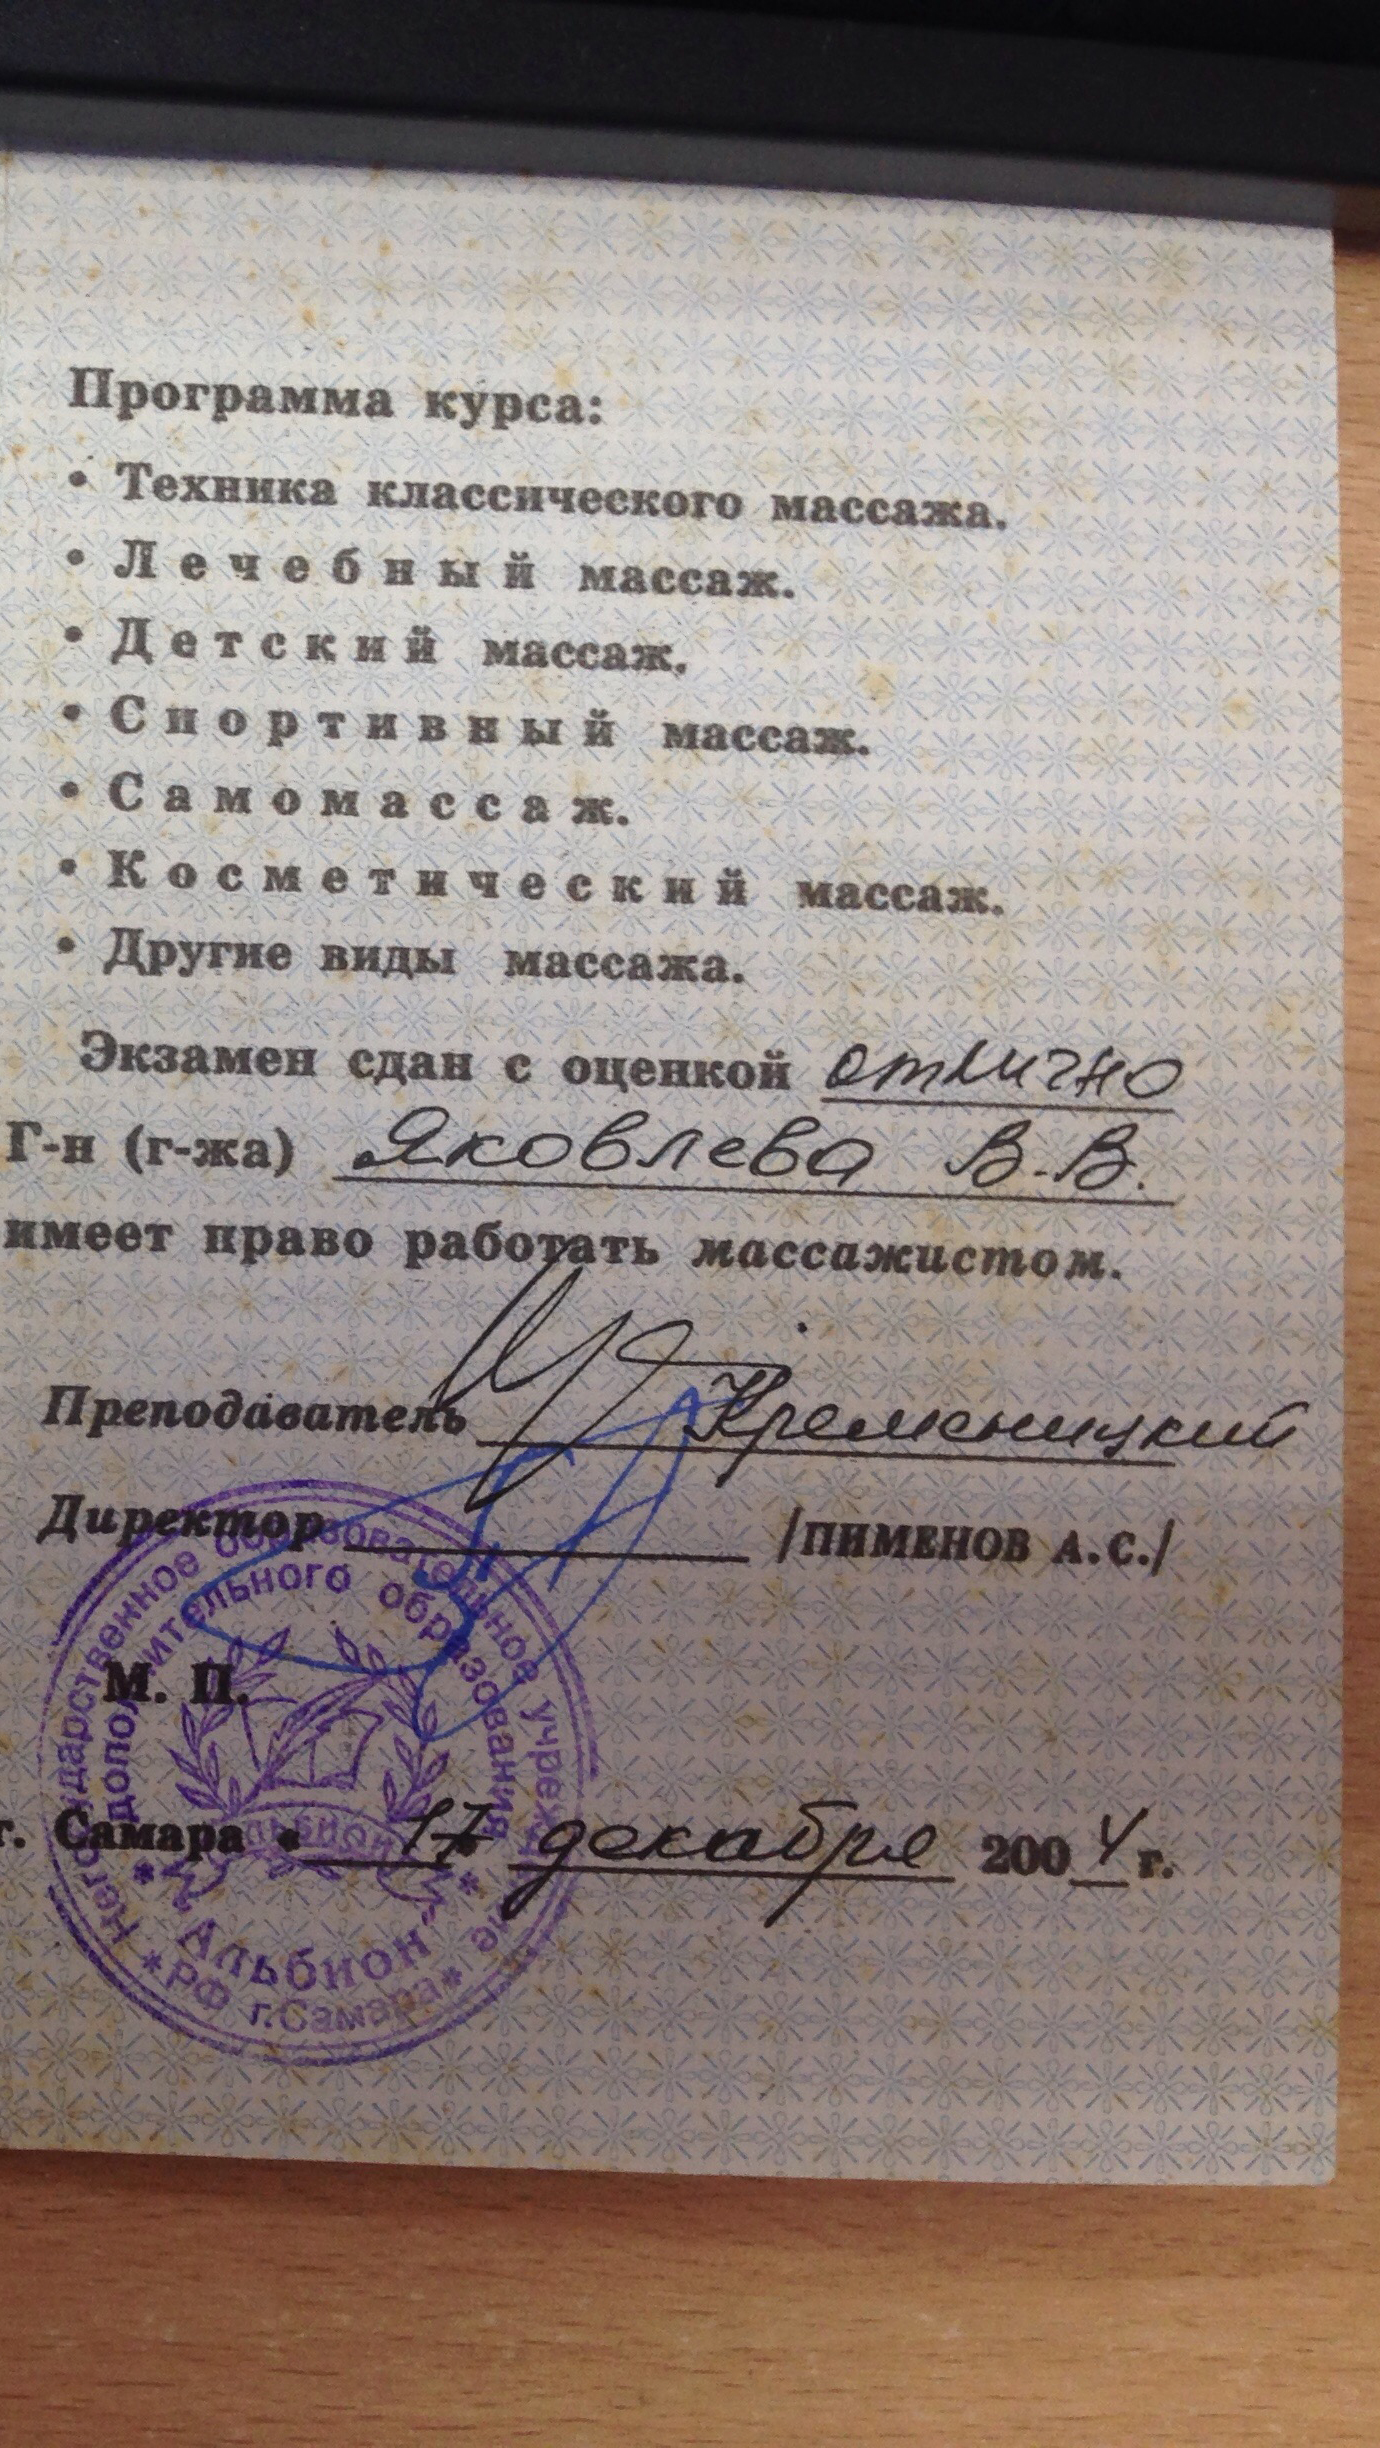 Программа курса:
• Техника классического массажа.
• Лечебный массаж.
• Детский массаж.
• Спортивный массаж.
• Самомассаж.
• Косметический массаж.
• Другие виды массажа.
Экзамен сдан с оценкой отлично
Г-н (г-жа) Яковлева В.В.
имеет право работать массажистом.
Преподаватель Кременицкий
Директор /ПИМЕНОВ А.С./
М. П.
г. Самара « 17 декабря 2004 г.
Негосударственное образовательное учреждение
дополнительного образования
Альбион
Альбион
* РФ г.Самара *